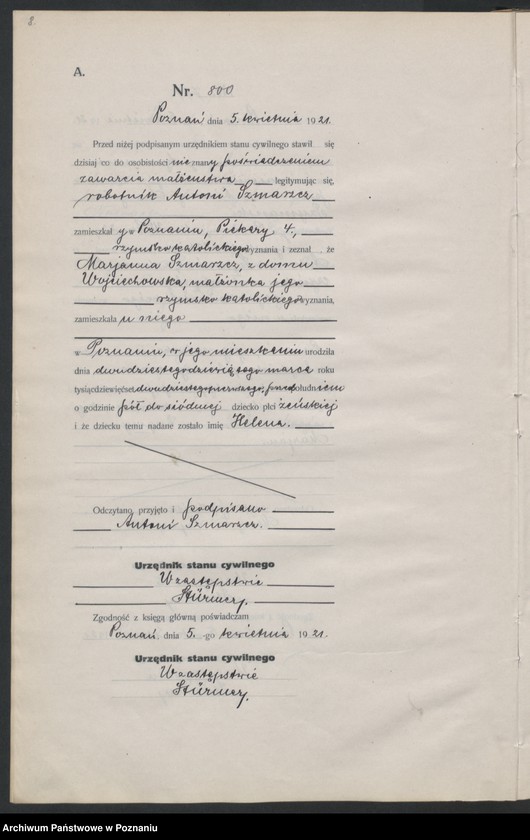 8.
A.
Nr. 800
Poznań dnia 5. kwietnia 1921.
Przed niżej podpisanym urzędnikiem stanu cywilnego stawił się
dzisiaj co do osobistości nieznany poświadczeniem
zawarcia małżeństwa legitymując się,
robotnik Antoni Szmarzcz
zamieszkał y w Poznaniu, Piekary 4.,
rzymsko katolickiego wyznania i zeznał, że
Marjanna Szmarzcz, z domu
Wojciechowska, małżonka jego
rzymsko katolickiego wyznania,
zamieszkała u niego
w Poznaniu, w jego mieszkaniu urodziła
dnia dwudziestegodziewiątego marca roku
tysiącdziewięćset dwudziestegopierwszego, przedpołudniem
o godzinie pół do siódmej dziecko płci żeńskiej
i że dziecku temu nadane zostało imię Helena.
Odczytano, przyjęto i podpisano
Antoni Szmarzcz.
Urzędnik stanu cywilnego
W zastępstwie
Stürmer.
Zgodność z księgą główną poświadczam
Poznań dnia 5. -go kwietnia 1921.
Urzędnik stanu cywilnego
W zastępstwie
Stürmer.
Archiwum Państwowe w Poznaniu